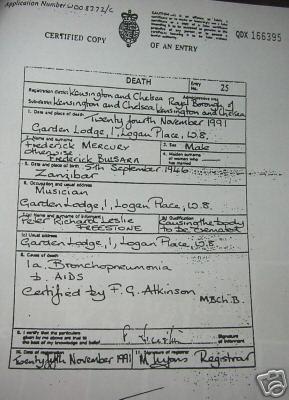 Application Number W008272/C
CERTIFIED COPY
OF AN ENTRY
QDX 166395
DEATH
Entry No. 25
Registration district Kensington and Chelsea
Administrative area Royal Borough of
Sub-district Kensington and Chelsea Kensington and Chelsea
1. Date and place of death
Twenty fourth November 1991
Garden Lodge, 1, Logan Place, W.8.
2. Name and surname
Frederick MERCURY
otherwise
Frederick BULSARA
3. Sex Male
4. Maiden surname of woman who has married
5. Date and place of birth 5th September 1946
Zanzibar
6. Occupation and usual address
Musician
Garden Lodge, 1, Logan Place, W.8.
7.(a) Name and surname of informant
Peter Richard Leslie
FREESTONE
(b) Qualification
Causing the body
to be cremated
(c) Usual address
Garden Lodge, 1, Logan Place, W.8.
8. Cause of death
1a. Bronchopneumonia
b. AIDS
Certified by F. G. Atkinson
MBCh.B.
9. I certify that the particulars given by me above are true to the best of my knowledge and belief
Signature of informant
10. Date of registration
Twenty fifth November 1991
11. Signature of registrar
M Lyons Registrar